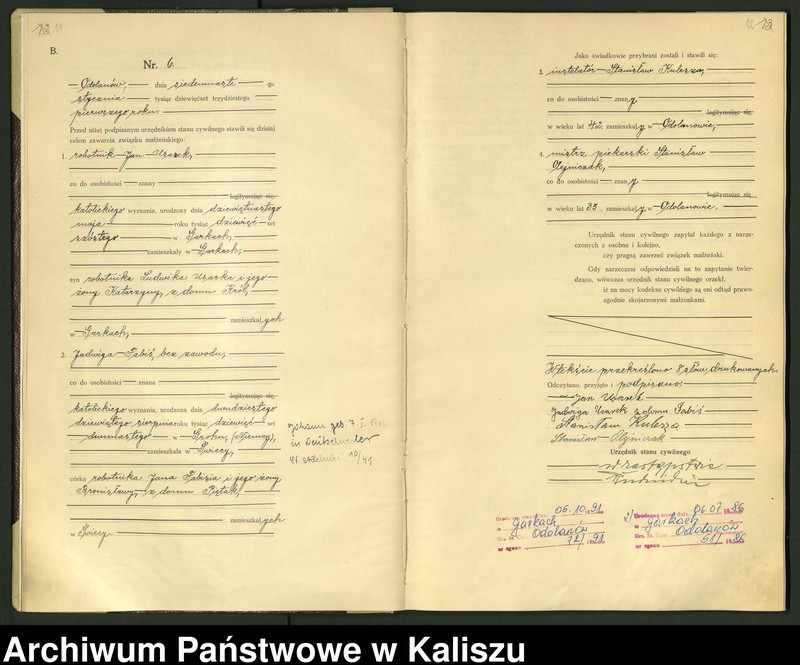 B.
Nr. 6
Odolanów, dnia siedemnaste go
stycznia tysiąc dziewięćset trzydziestego
pierwszego roku.
Przed niżej podpisanym urzędnikiem stanu cywilnego stawili się dzisiaj
celem zawarcia związku małżeńskiego:
1. robotnik Jan Usarek,
co do osobistości znany
legitymując się
katolickiego wyznania, urodzony dnia dziewiętnastego
maja roku tysiąc dziewięć set
szóstego w Garkach,
zamieszkały w Garkach,
syn robotnika Ludwika Usarka i jego
żony Katarzyny, z domu Król,
zamieszkałych
w Garkach,
2. Jadwiga Fabiś, bez zawodu,
co do osobistości znana
legitymując się
katolickiego wyznania, urodzona dnia dwudziestego
dziewiątego sierpnia roku tysiąc dziewięć set
dwunastego w Grohn, (Niemcy),
zamieszkała w Świecy,
córka robotnika Jana Fabisia i jego żony
Bronisławy, z domu Piętak,
zamieszkałych
w Świecy.
geb. 7. I.
in Deutschwalde
10/41
12
Jako świadkowie przybrani zostali i stawili się:
3. instalator Stanisław Kulesza,
co do osobistości znany
legitymując się
w wieku lat 42, zamieszkały w Odolanowie,
4. mistrz piekarski Stanisław
Olejniczak,
co do osobistości znany
legitymując się
w wieku lat 33, zamieszkały w Odolanowie.
Urzędnik stanu cywilnego zapytał każdego z narze-
czonych z osobna i kolejno,
czy pragną zawrzeć związek małżeński.
Gdy narzeczeni odpowiedzieli na to zapytanie twier-
dząco, wówczas urzędnik stanu cywilnego orzekł,
iż na mocy kodeksu cywilnego są oni odtąd prawo-
zgodnie skojarzonymi małżonkami.
W tekście przekreślono 8 słów drukowanych.
Odczytano, przyjęto i podpisano
Jan Usarek
Jadwiga Usarek z domu Fabiś
Stanisław Kulesza
Stanisław Olejniczak
Urzędnik stanu cywilnego
w zastępstwie
06.10.91
w Garkach
Odolanów
12/91
2/ 06.07.86
w Garkach
Odolanów
51/86
Archiwum Państwowe w Kaliszu